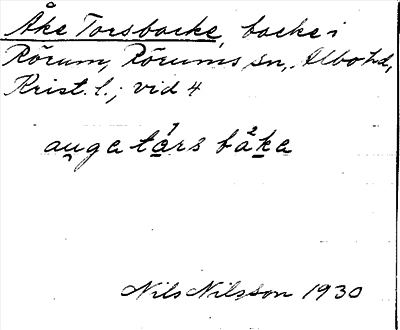 Åke Torsbacke, backe i
Rörum, Rörums sn, Albo hd,
Krist. l.; vid 4
auga tårs båka
Nils Nilsson 1930